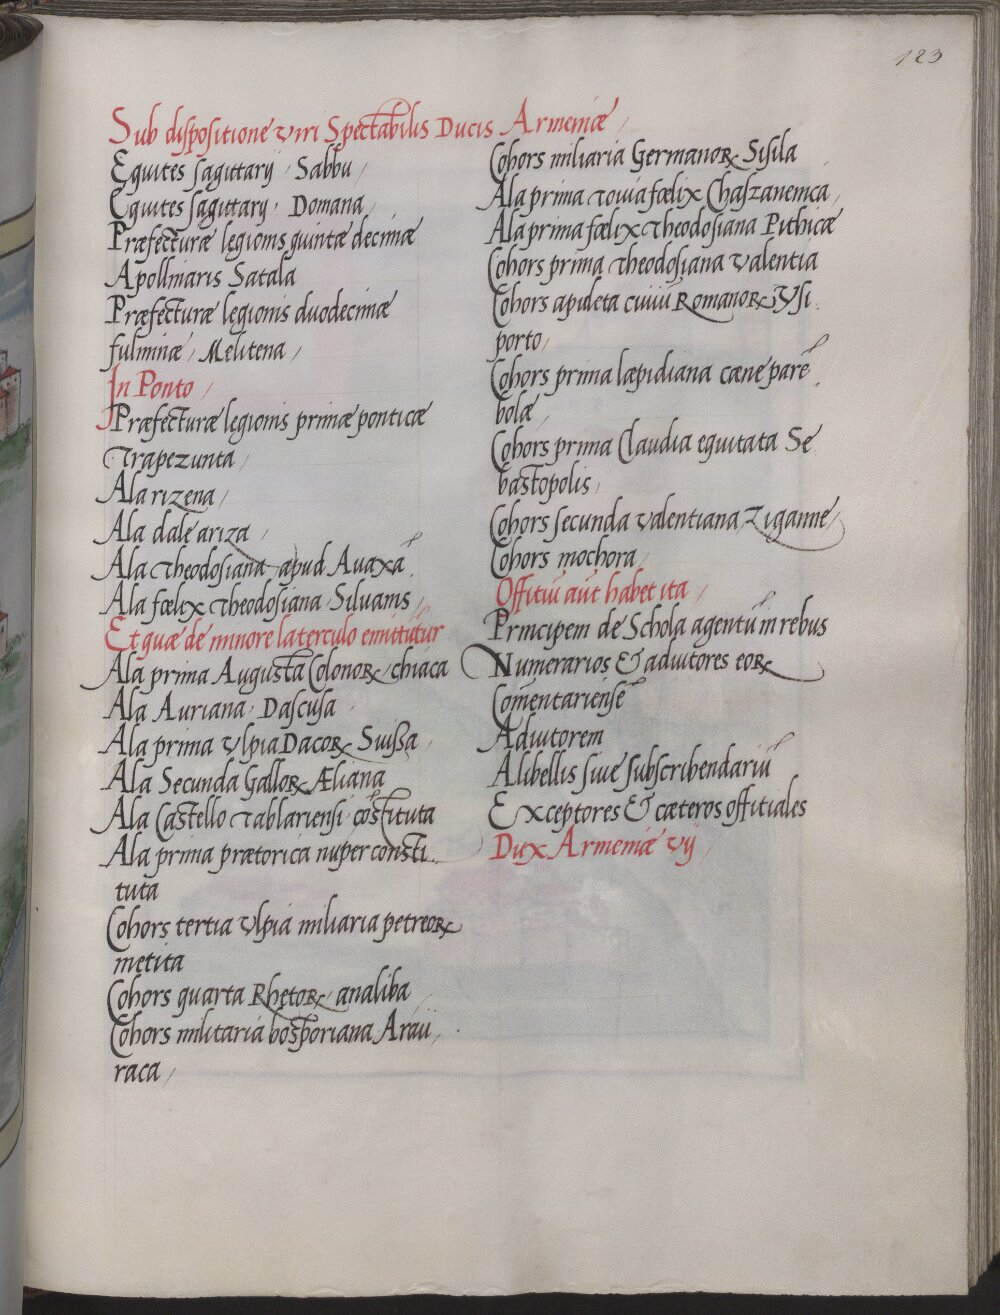 123
Sub dispositione viri Spectabilis Ducis Armeniæ
Equites sagittarij, Sabbu,
Equites sagittarij, Domana,
Præfecturæ legionis quintæ decimæ
Apollinaris Satala
Præfecturæ legionis duodecimæ
fulminæ, Melitena,
In Ponto,
Præfecturæ legionis primæ ponticæ
Trapezunta,
Ala rizena,
Ala dale ariza,
Ala Theodosiana apud Auaxā.
Ala fœlix Theodosiana Siluanis,
Et quæ de minore laterculo emittūtur
Ala prima Augusta Colonoꝝ, chiaca
Ala Auriana, Dascusa,
Ala prima vlpia Dacoꝝ Suissa,
Ala Secunda Galloꝝ Æliana
Ala Castello Tablariensi cōstituta
Ala prima prætorica nuper consti
tuta
Cohors tertia vlpia miliaria petreoꝝ
metita
Cohors quarta Rhętoꝝ, analiba,
Cohors militaria bosporiana Araū,
raca,
Cohors miliaria Germanoꝝ Sisila
Ala prima Iouia fœlix Chaszanenica,
Ala prima fœlix Theodosiana Pithicæ
Cohors prima Theodosiana valentia
Cohors apuleta ciuiū Romanoꝝ Ysi
porto,
Cohors prima læpidiana cæne parē
bolæ,
Cohors prima Claudia equitata Se
bastopolis,
Cohors secunda valentiana, Ziganne,
Cohors mochora,
Offitiū aūt habet ita,
Principem de Schola agentū in rebus
Numerarios & adiutores eoꝝ
Comentariensē
Adiutorem
A libellis siue subscribendariū
Exceptores & cæteros offitiales
Dux Armeniæ vij,